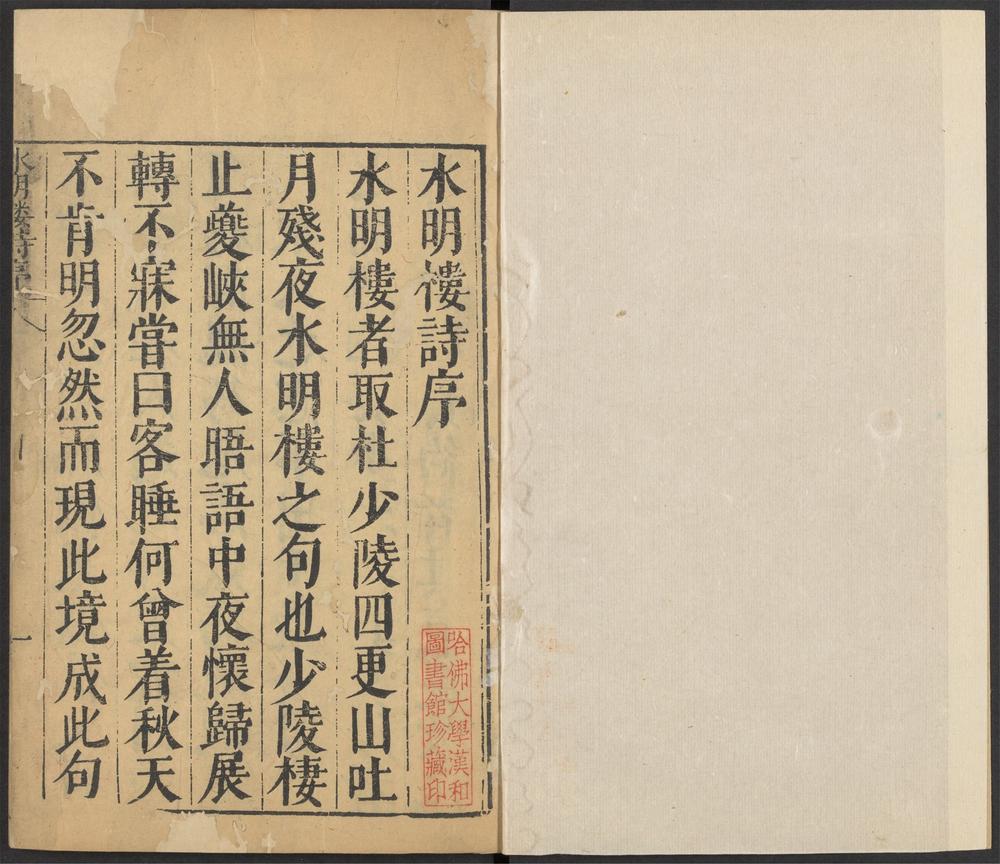 水明樓詩序
水明樓者取杜少陵四更山吐
月殘夜水明樓之句也少陵棲
止夔峽無人晤語中夜懷歸展
轉不寐嘗曰客睡何曾着秋天
不肯明忽然而現此境成此句
水明樓詩序
一
哈佛大學漢和
圖書館珍藏印